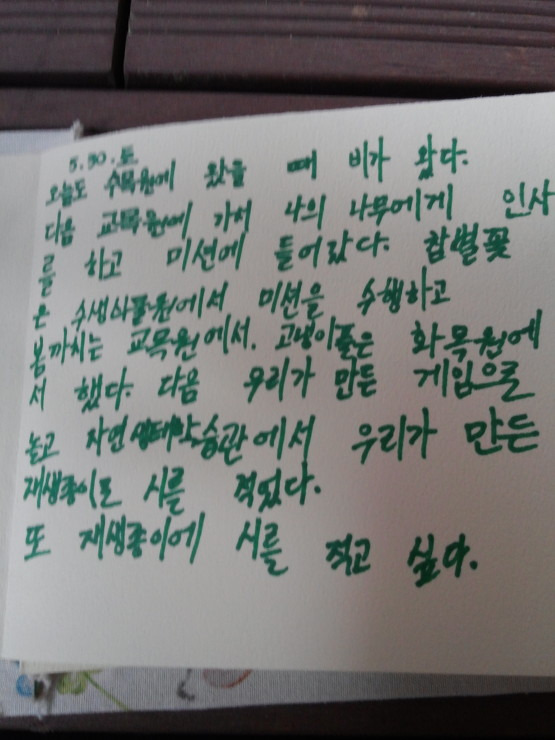 5.30.토
오늘도 수목원에 왔을 때 비가 왔다.
다음 교목원에 가서 나의 나무에게 인사
를 하고 미션에 들어갔다. 참별꽃
은 수생식물원에서 미션을 수행하고
봄까치는 교목원에서. 고냉이풀은 화목원에
서 했다. 다음 우리가 만든 게임으로
놀고 자연생태학습관에서 우리가 만든
재생종이로 시를 적었다.
또 재생종이에 시를 적고 싶다.